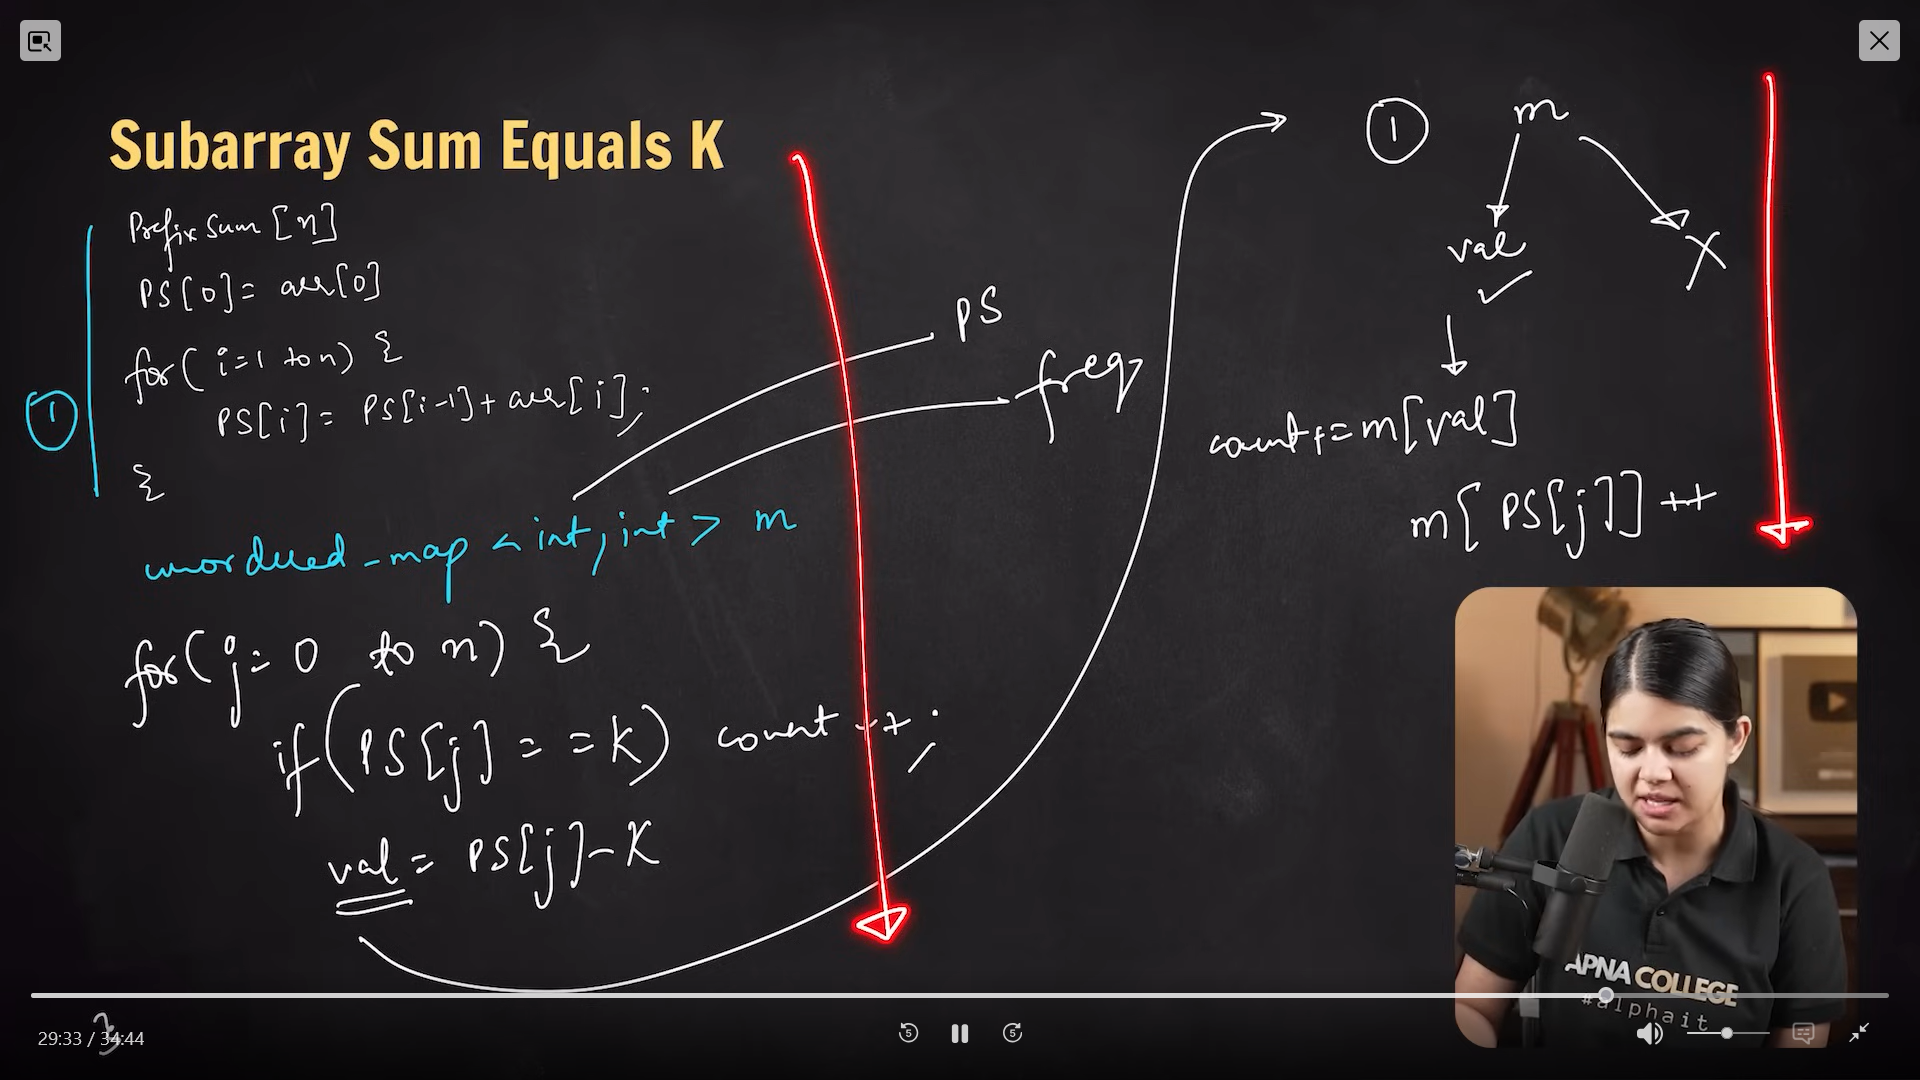 Subarray Sum Equals K
Prefix Sum [n]
PS[0] = arr[0]
for( i=1 to n) {
PS[i] = PS[i-1] + arr[i];
}
1
unordered_map < int, int > m
PS
freq
for( j= 0 to n) {
if(PS[j] = = K) count ++ ;
val = PS[j] - K
}
1
m
val
X
count += m[val]
m[ PS[j]] ++
APNA COLLEGE
#alphait
29:33 / 34:44
5
5